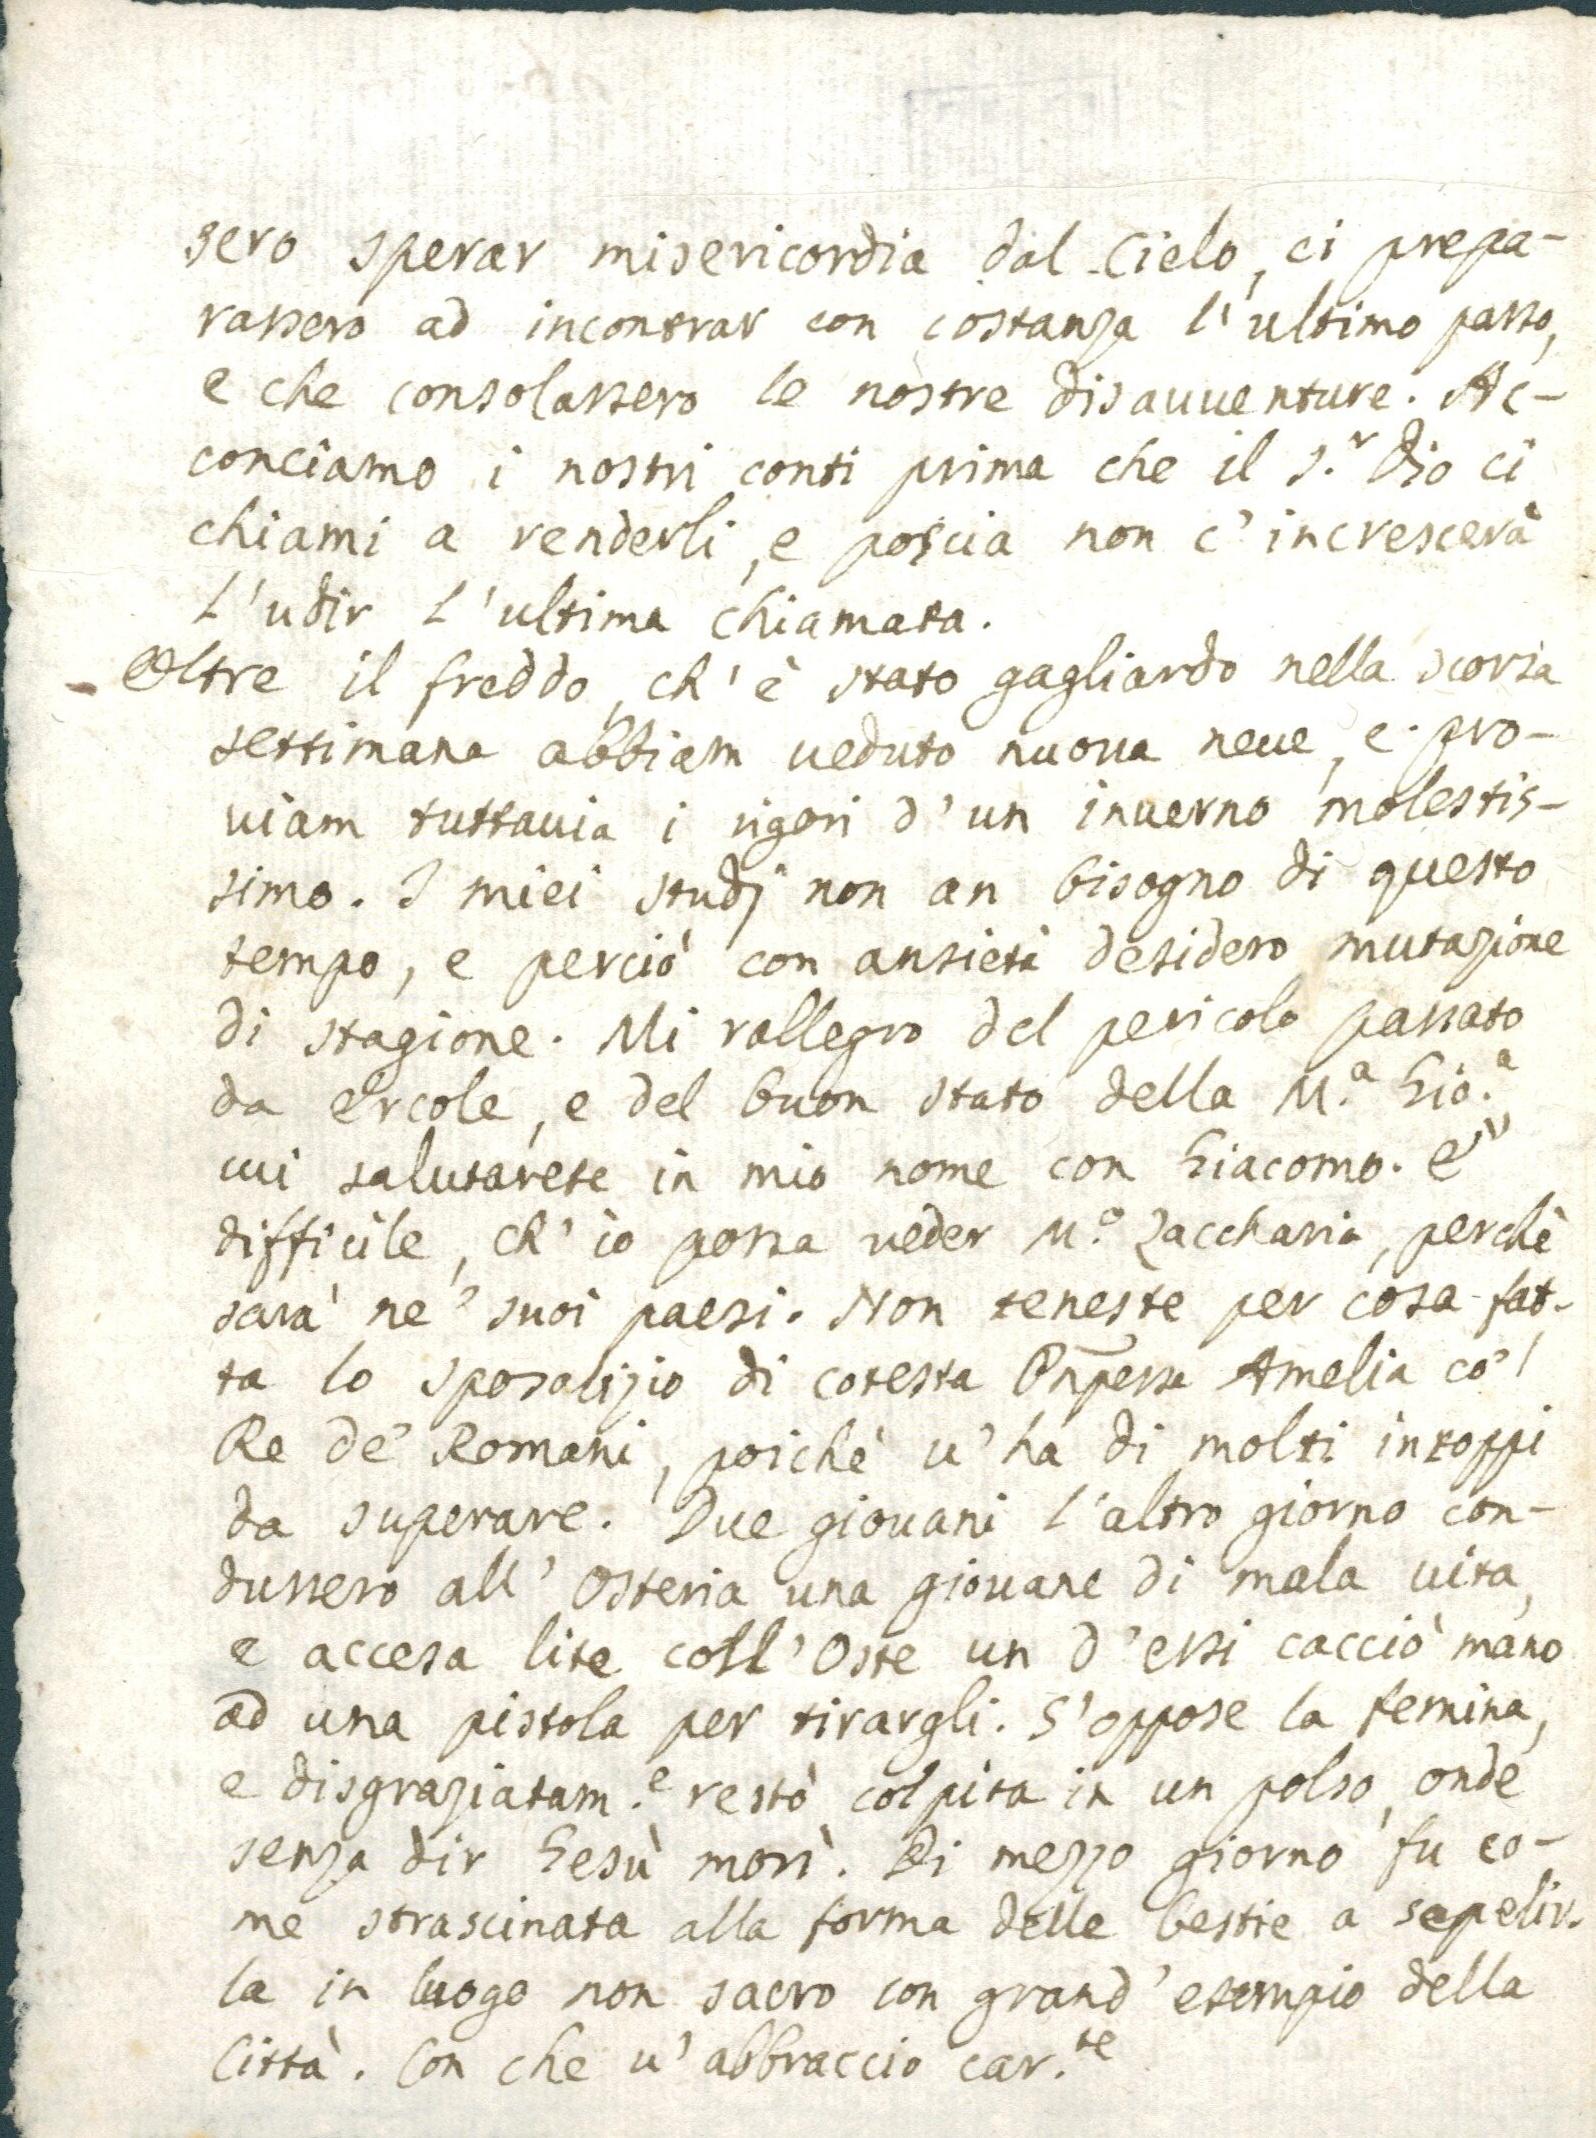 sero sperar misericordia dal Cielo, ci prepa-
rassero ad incontrar con costanza l'ultimo passo,
e che consolassero le nostre disauuenture. Ac-
conciamo i nostri conti prima che il S.r Dio ci
chiami a renderli, e poscia non c'increscerà
l'udir l'ultima chiamata.
Oltre il freddo, ch'è stato gagliardo nella scorsa
settimana abbiam ueduto nuoua neue, e pro-
uiam tuttauia i rigori d'un inuerno molestis-
simo. I miei studj non an bisogno di questo
tempo, e perciò con ansietà desidero mutazione
di stagione. Mi rallegro del pericolo passato
da Ercole, e del buon stato della M.a Gio.a
cui salutarete in mio nome con Giacomo. E'
difficile, ch'io possa ueder M.o Zaccharia, perchè
sarà ne' suoi paesi. Non teneste per cosa fat-
ta lo sposalizio di cotesta Pnpessa Amelia co'l
Re de' Romani, poichè u'ha di molti intoppi
da superare. Due giouani l'altro giorno con-
dussero all'Osteria una giouane di mala uita,
e accesa lite coll'Oste un d'essi cacciò mano
ad una pistola per tirargli. S'oppose la femina,
e disgraziatam.e restò colpita in un polso, onde
senza dir Gesù morì. Di mezzo giorno fu co-
me strascinata alla forma delle bestie a sepelir-
la in luogo non sacro con grand'esempio della
Città. Con che u'abbraccio car.te